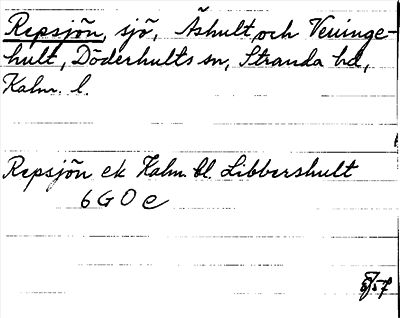 Repsjön, sjö, Åshult och Veninge-
hult, Döderhults sn, Stranda hd,
Kalm. l.
Repsjön ek Kalm. bl. Libbershult
6 G 0 e